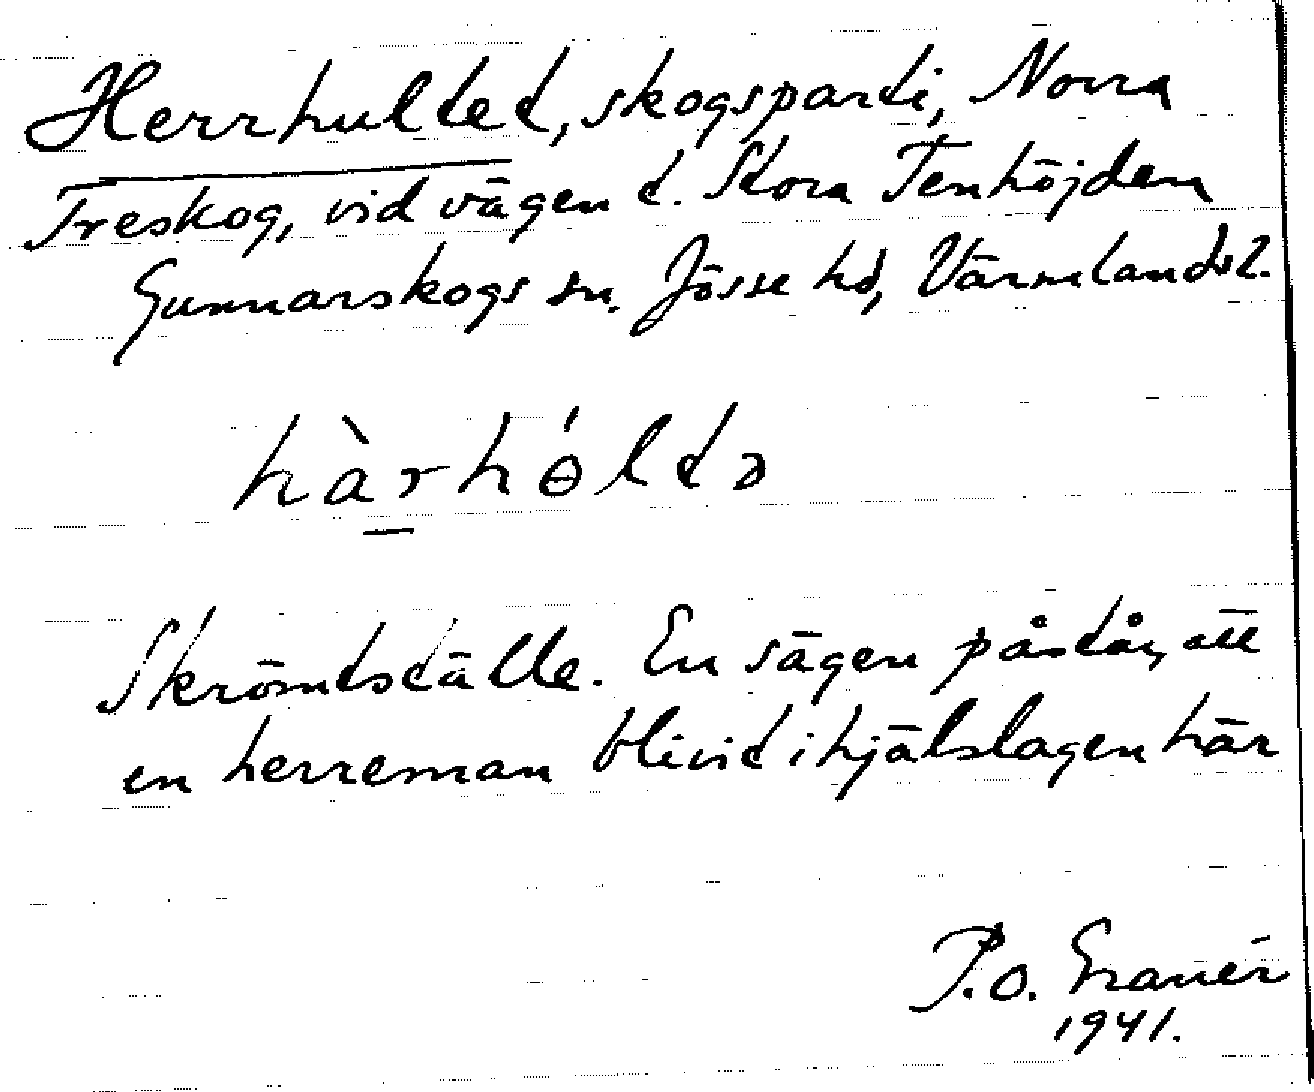 Herrhultet, skogsparti, Norra
Treskog, vid vägen t. Stora Tenhöjden
Gunnarskogs sn. Jösse hd, Värmlands l.
hàrhɵ́ltə
Skrömtställe. En sägen påstår, att
en herreman blivit ihjälslagen här
P.O. Granér
1941.